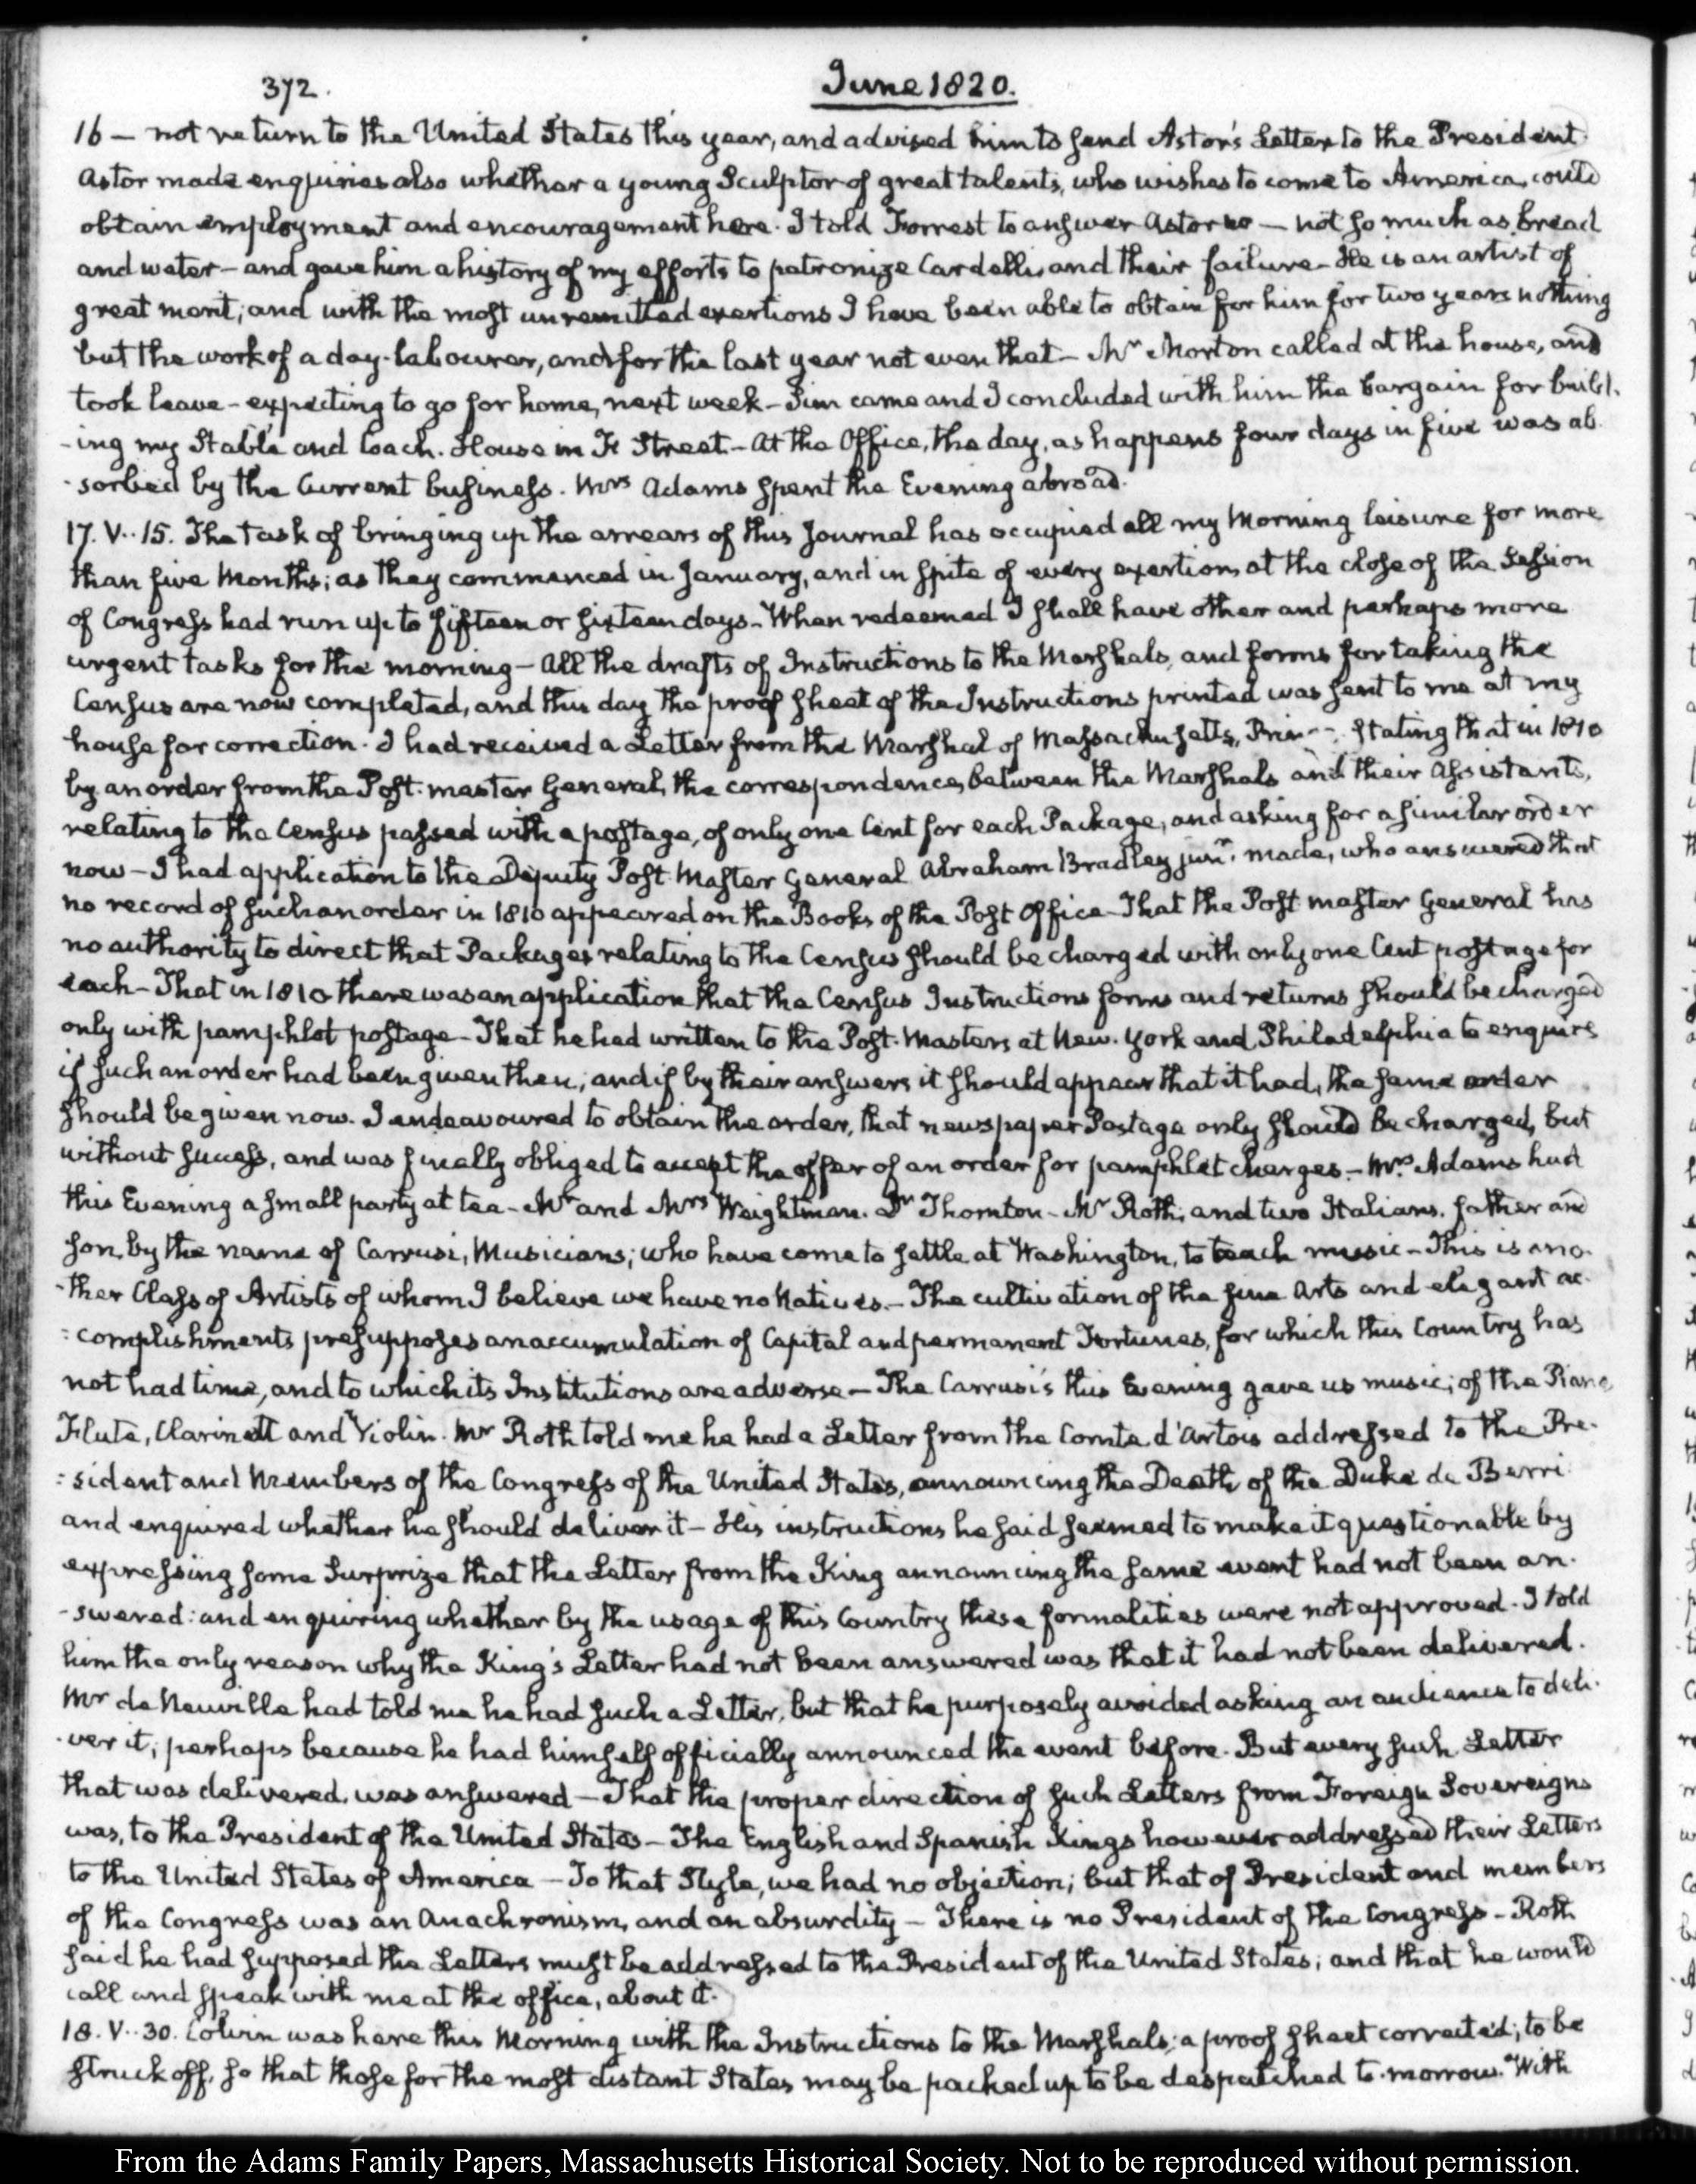 372.
June 1820.
16 — not return to the United States this year, and advised him to send Astor's Letter to the President.
Astor made enquiries also whether a young Sculptor of great talents, who wishes to come to America, could
obtain employment and encouragement here. I told Forrest to answer Astor no — not so much as bread
and water — and gave him a history of my efforts to patronize Cardelli, and their failure — He is an artist of
great merit; and with the most unremitted exertions I have been able to obtain for him for two years nothing
but the work of a day-labourer, and for the last year not even that — Mr Morton called at the house, and
took leave — expecting to go for home, next week — Sim came and I concluded with him the bargain for build-
-ing my Stable and Coach-House in F. Street — At the Office, the day, as happens four days in five was ab-
-sorbed by the Current business. Mrs Adams spent the Evening abroad.
17. V..15. The task of bringing up the arrears of this Journal has occupied all my Morning leisure for more
than five Months; as they commenced in January, and in spite of every exertion, at the close of the Session
of Congress had run up to fifteen or sixteen days — When redeemed I shall have other and perhaps more
urgent tasks for the morning — All the drafts of Instructions to the Marshals, and forms for taking the
Census are now completed, and this day the proof sheet of the Instructions printed was sent to me at my
house for correction. I had received a Letter from the Marshal of Massachusetts, Prin--, stating that in 1810
by an order from the Post-master General, the correspondence, between the Marshals and their Assistants,
relating to the Census passed with a postage, of only one Cent for each Package, and asking for a similar order
now — I had application to the Deputy Post Master General Abraham Bradley junr. made, who answered that
no record of such an order in 1810 appeared on the Books of the Post Office — That the Post master General has
no authority to direct that Packages relating to the Census should be charged with only one Cent postage for
each — That in 1810 there was an application that the Census Instructions forms and returns should be charged
only with pamphlet postage — That he had written to the Post-Masters at New-York and Philadelphia to enquire
if such an order had been given then; and if by their answers it should appear that it had, the same order
should be given now. I endeavoured to obtain the order, that newspaper Postage only should be charged, but
without success, and was finally obliged to accept the offer of an order for pamphlet charges. — Mrs Adams had
this Evening a small party at tea — Mr and Mrs Weightman. Dr Thornton — Mr Roth, and two Italians, father and
son, by the name of Carrusi, Musicians; who have come to settle at Washington, to teach music — This is ano-
-ther Class of Artists of whom I believe we have no Natives. — The cultivation of the fine Arts and elegant ac-
:complishments presupposes an accumulation of Capital and permanent Fortunes, for which this Country has
not had time, and to which its Institutions are adverse — The Carrusi's this Evening gave us music; of the Piano
Flute, Clarinett and Violin. Mr Roth told me he had a Letter from the Comte d'Artois addressed to the Pre-
:sident and Members of the Congress of the United States, announcing the Death of the Duke de Berri
and enquired whether he should deliver it — His instructions he said seemed to make it questionable by
expressing some Surprize that the Letter from the King announcing the same event had not been an-
-swered: and enquiring whether by the usage of this Country these formalities were not approved. I told
him the only reason why the King's Letter had not been answered was that it had not been delivered.
Mr de Neuville had told me he had such a Letter, but that he purposely avoided asking an audience to deli-
-ver it; perhaps because he had himself officially announced the event before. But every such Letter
that was delivered, was answered — That the proper direction of such Letters from Foreign Sovereigns
was, to the President of the United States — The English and Spanish Kings however addressed their Letters
to the United States of America — To that Style, we had no objection; but that of President and members
of the Congress was an Anachronism, and an absurdity — There is no President of the Congress — Roth
said he had supposed the Letters must be addressed to the President of the United States; and that he would
call and speak with me at the office, about it.
18. V..30. Colvin was here this Morning with the Instructions to the Marshals; a proof sheet corrected; to be
struck off, so that those for the most distant States may be packed up to be despatched to-morrow. With
From the Adams Family Papers, Massachusetts Historical Society. Not to be reproduced without permission.